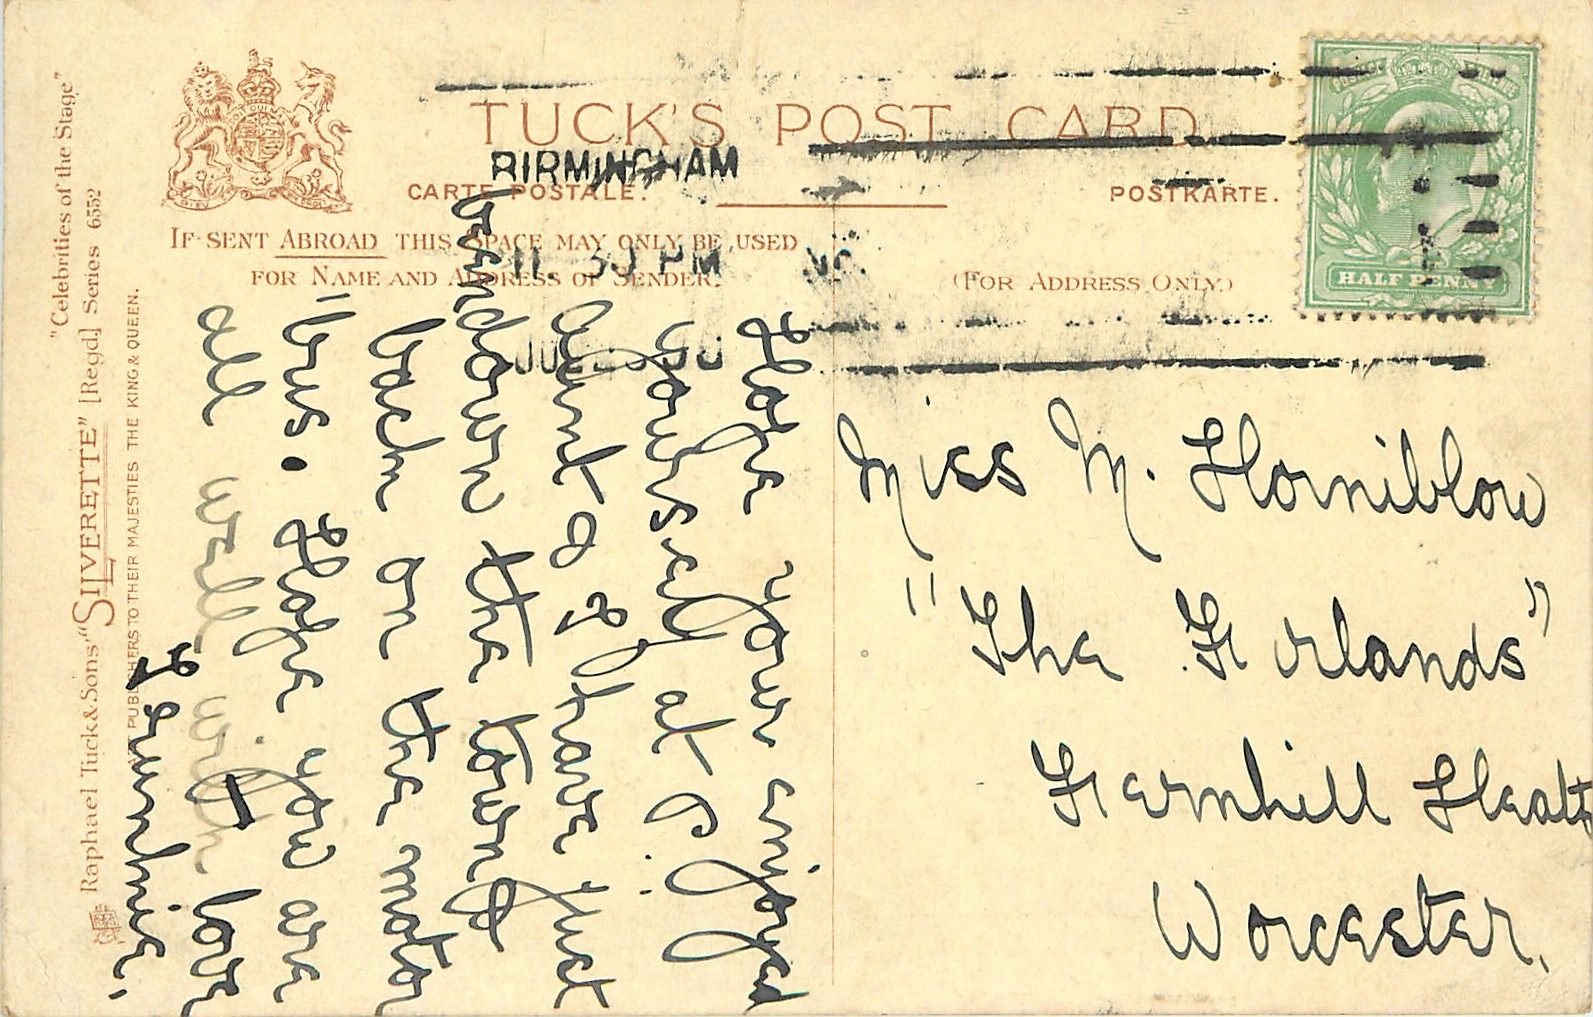 TUCK'S POST CARD
CARTE POSTALE.
POSTKARTE.
IF SENT ABROAD THIS SPACE MAY ONLY BE USED
FOR NAME AND ADDRESS OF SENDER.
(FOR ADDRESS ONLY.)
BIRMINGHAM
11. 30 PM
HALF PENNY
"Celebrities of the Stage"
Raphael Tuck & Sons' "SILVERETTE" [Regd.] Series 6552
PUBLISHERS TO THEIR MAJESTIES THE KING & QUEEN.
Hope your enjoyed
yourself at P.
Aunt & I have just
been down the town &
back on the motor
'bus. Hope you are
all well with love
F Grunhie.
Miss M. Horniblow
"The Firlands"
Fernhill Heath
Worcester.